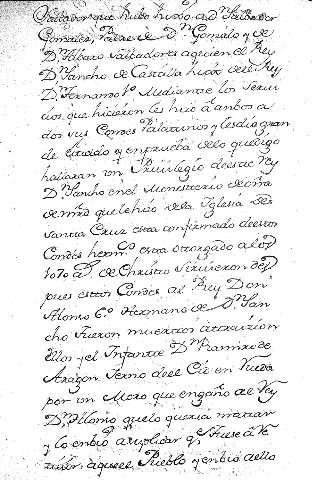 Salbador que hubo hixo a Dn Salbador
Gonzales, Padre de Dn Gonzalo y de
Dn Albaro Salbadores a quien el Rey
Dn Sancho de Castilla hixo de el Rey
Dn Fernando 1o Mediante los Servi
dos que hicieron les hizo a ambos a
dos sus Condes Palatinos y les dio gran
de Estado y en prueba de lo que digo
hallaran un Privilegio de este Rey
Dn Sancho en el Monesterio de Oña
de mrd que le hizo de la Iglesia de
Santa Cruz esta confirmado de estos
Condes hermos esta otorgado a los
1070 as de Christo Sirvieron des
pues estos Condes al Rey Don
Alonso 6o Hermano de Dn San
cho Fueron muertos a traizion
Ellos y el Infante Dn Ramiro de
Aragon Ierno de el Cid en Rueda
por un Moro que engaño al Rey
Dn Alonso que lo queria matar
y lo enbio a suplicar qe fuese a Re
zivir aquel Pueblo y enbio a ello